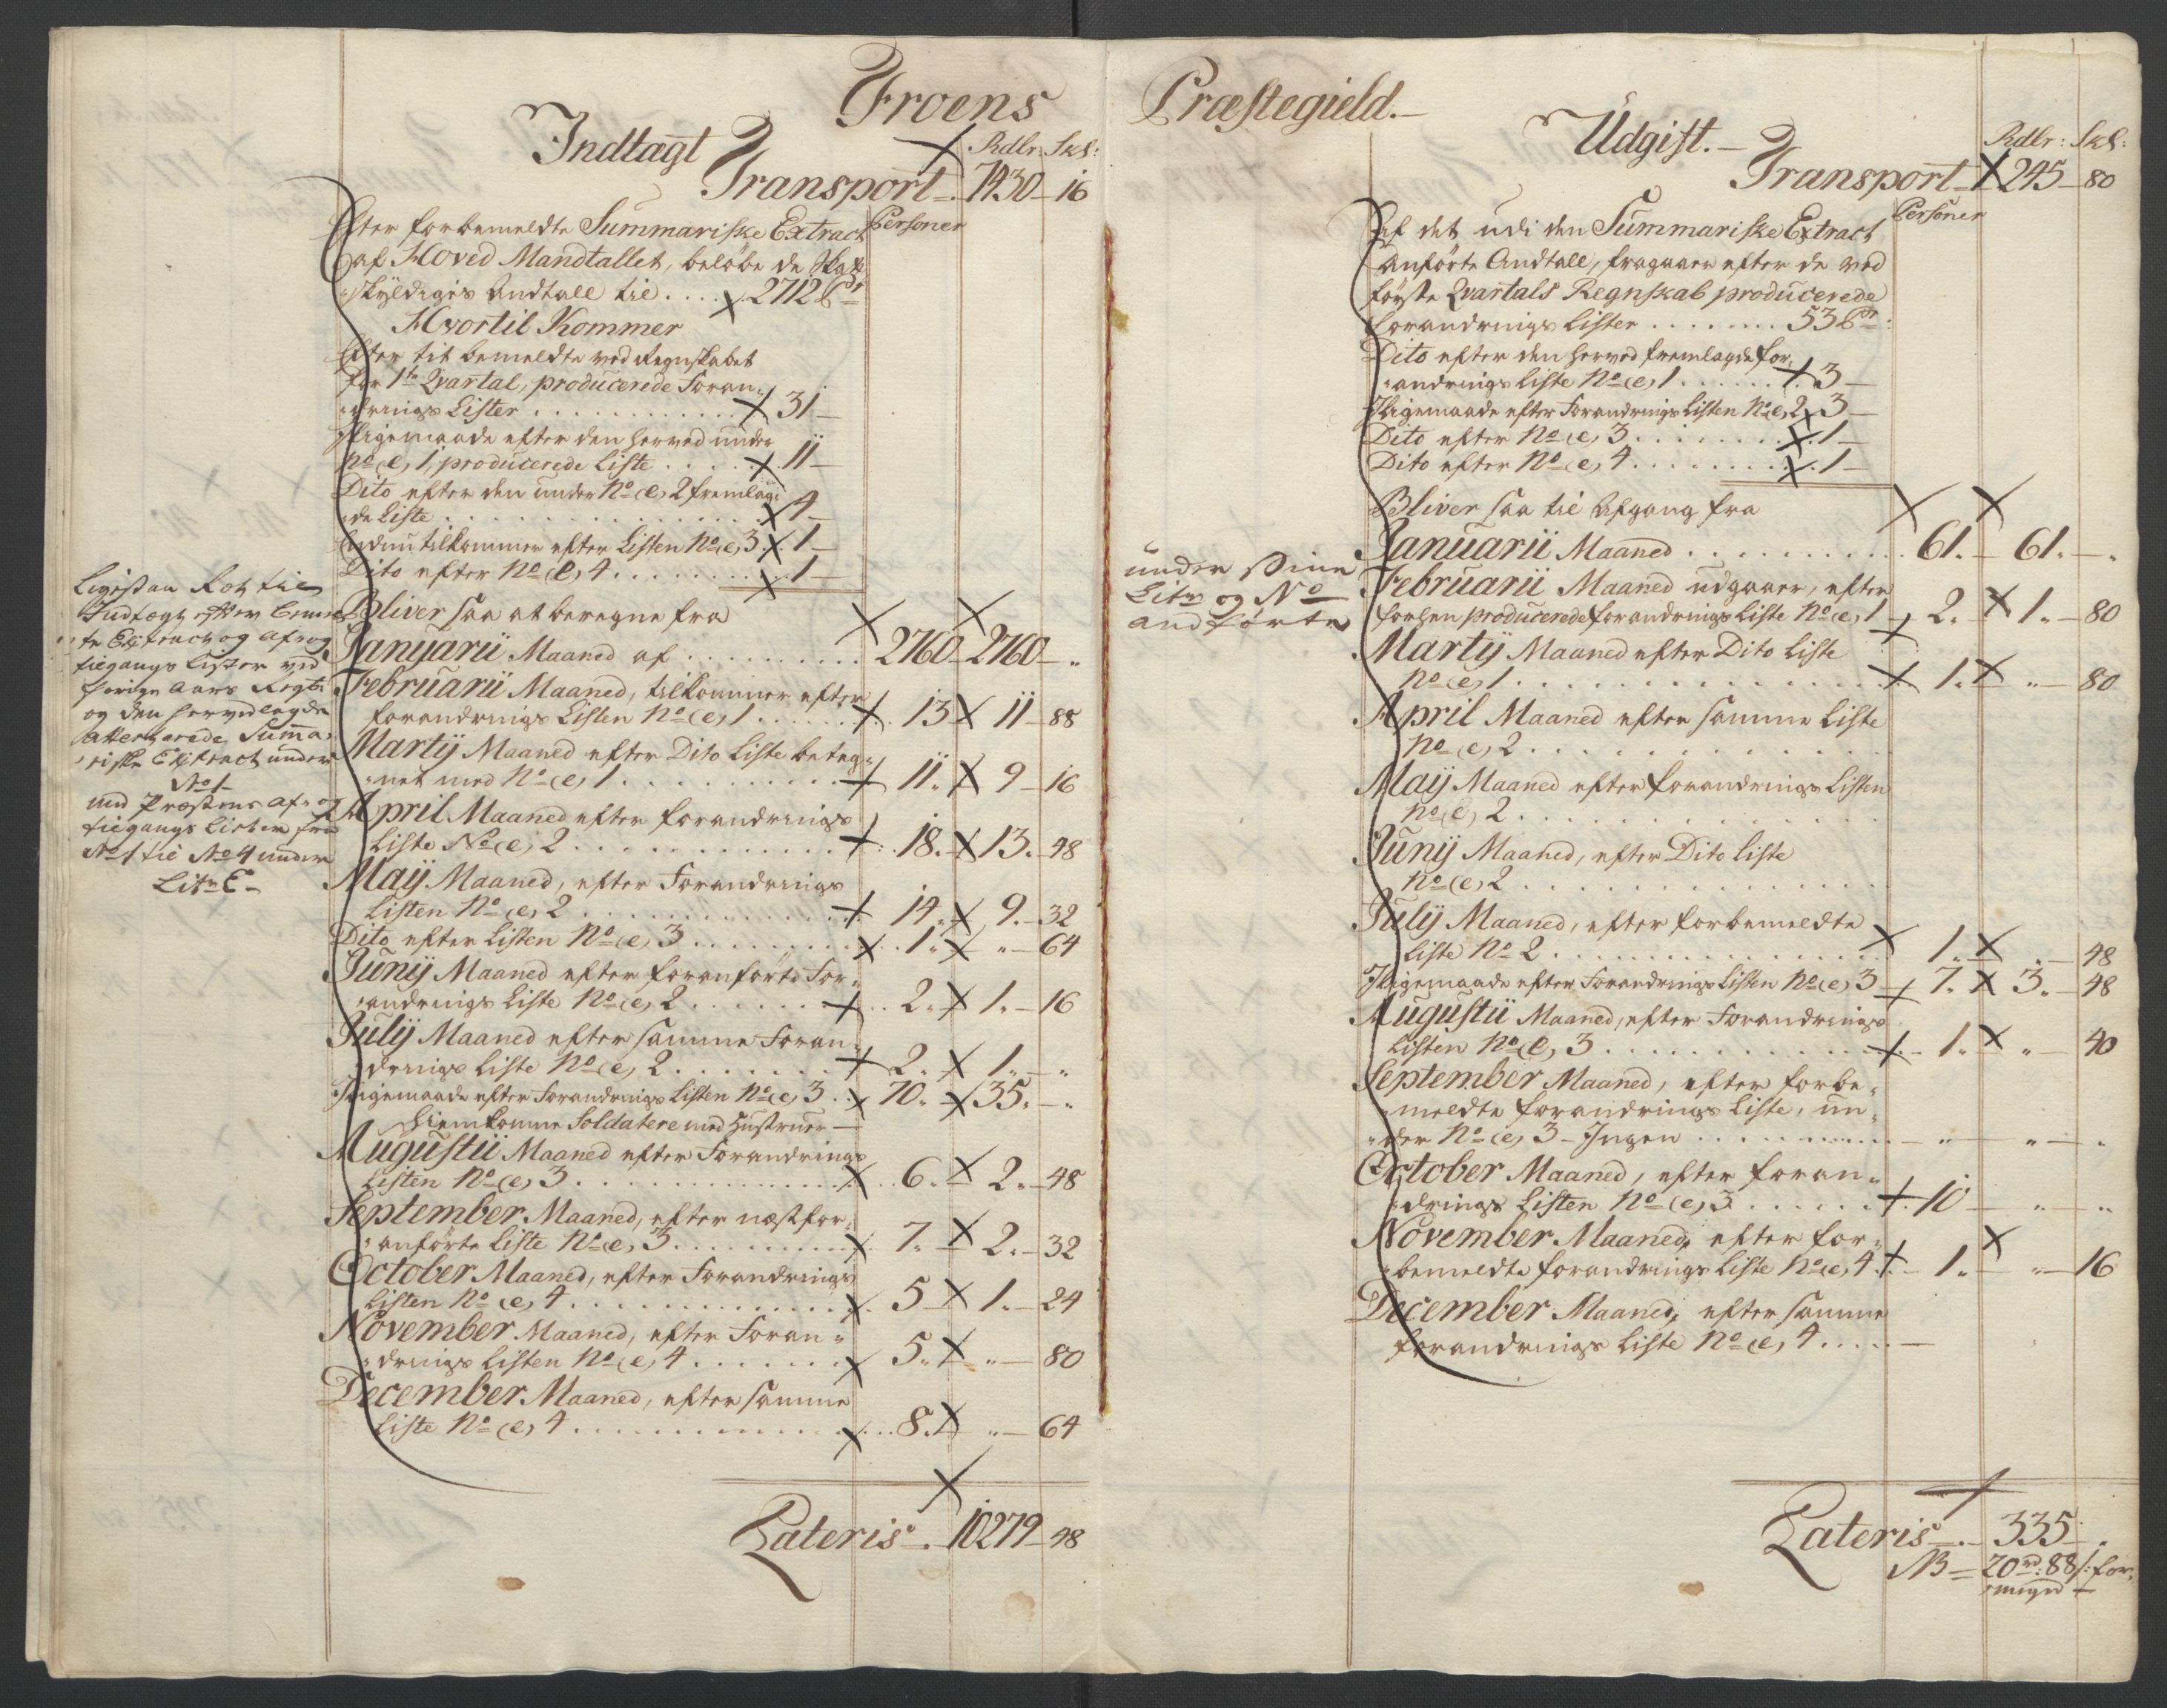 Froens
Indtagt
Rdlr: Skl:
Transport 7430 16
Personer
Efter forbemeldte Summariske Extract
af Hoved Mandtallet, beløbe de Skat-
skyldiges Andtall til . . . . 2712 P
Hvortil Kommer
Efter tit bemeldte ved Regnskabet
for 1te Qvartal, producerede Foran-
drings Lister . . . . 31
Iligemaade efter den herved under
No (e, 1, producerede Liste . . . . 11
Dito efter den under No (e, 2 fremlag-
de Liste . . . . 4
Endnu tilkommer efter Listen No (e, 3 . . 1
Dito efter No (e, 4 . . . . 1
Bliver saa at beregne fra
Januarii Maaned af . . . . 2760 2760 "
Februarii Maaned, tilkommer efter
forandrings Listen No (e, 1 . . . . 13 11 88
Martij Maaned efter Dito Liste beteg-
net med No (e, 1 . . . . 11 9 16
April Maaned efter forandrings
Liste No (e, 2 . . . . 18 13 48
Maij Maaned, efter Forandrings
Listen No (e, 2 . . . . 14 9 32
Dito efter Listen No (e, 3 . . . . 1 " 64
Junij Maaned efter foranførte For-
andrings Liste No (e, 2 . . . . 2 1 16
Julij Maaned efter samme Foran-
drings Liste No (e, 2 . . . . 2 1 "
Iligemaade efter Forandrings Listen No (e, 3 . . 70 35 "
hiemkomne Soldatere med Hustruer
Augustii Maaned efter Forandrings
Listen No (e, 3 . . . . 6 2 48
September Maaned, efter næstfor-
anførte Liste No (e, 3 . . . . 7 2 32
October Maaned, efter Forandrings
Listen No (e, 4 . . . . 5 1 24
November Maaned, efter Foran-
drings Listen No (e, 4 . . . . 5 " 80
December Maaned, efter samme
Liste No (e, 4 . . . . 8 " 64
Lateris 10279 48
Ligesaa Ret til
Indtægt efter benevn-
te Extract og af- og
tilgangs Lister ved
forige Aars Regnsk
og den hervedlagde
attesterede Summa-
riske Extract under
No 1
med Præstens af- og
tilgangs Lister fra
No 1 til No 4 under
Litr E
Præstegield.
Udgift.
Rdlr: Skl:
Transport 245 80
Personer
Af det udi den Summariske Extract
anførte Andtall, fragaaer efter de ved
første Qvartals Regnskab producerede
Forandrings Lister . . . . 53 P
Dito efter den herved fremlagde for-
andrings Liste No (e, 1 . . . . 3
Iligemaade efter Forandrings Listen No (e, 2 3
Dito efter No (e, 3 . . . . 1
Dito efter No (e, 4 . . . . 1
Bliver saa til Afgang fra
Januarii Maaned . . . . 61 61 "
Februarii Maaned udgaaer, efter
forhen producerede forandrings Liste No (e, 1 2 1 80
Martij Maaned efter Dito Liste
No (e, 1 . . . . 1 " 80
April Maaned efter samme Liste
No (e, 2 . . . .
Maij Maaned efter forandrings Listen
No (e, 2 . . . .
Junij Maaned, efter Dito Liste
No (e, 2 . . . .
Julij Maaned, efter forbemeldte
Liste No 2 . . . . 1 " 48
Iligemaade efter Forandrings Listen No (e, 3 7 3 48
Augustii Maaned, efter Forandrings
Listen No (e, 3 . . . . 1 " 40
September Maaned, efter forbe-
meldte forandrings Liste, un-
der No (e, 3 - Ingen . . . . " " "
October Maaned, efter foran-
drings Listen No (e, 3 . . . . 10 " "
November Maaned, efter for-
bemeldte forandrings Liste No (e, 4 . . 1 " 16
December Maaned, efter samme
forandrings Liste No (e, 4 . . . .
under sine
Litr og No
andførte
Lateris 335 "
NB 20 rd: 88 s: for